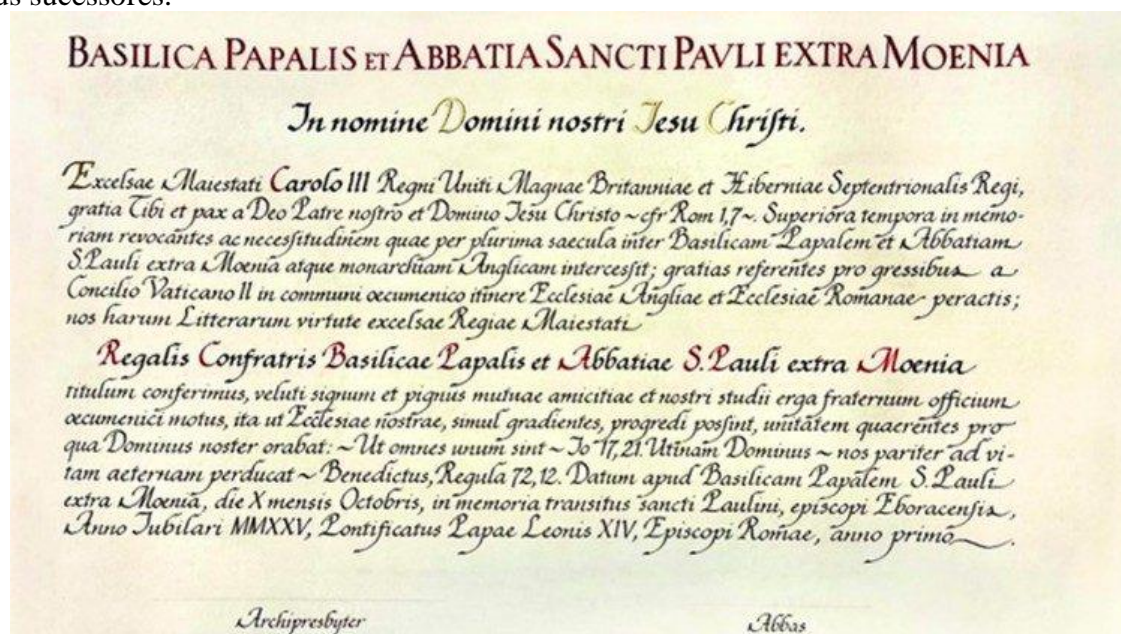 us sucessores.
BASILICA PAPALIS ET ABBATIA SANCTI PAVLI EXTRA MOENIA
In nomine Domini nostri Iesu Chriſti.
Excelsae Maiestati Carolo III Regni Uniti Magnae Britanniae et Hiberniae Septentrionalis Regi,
gratia Tibi et pax a Deo Patre noſtro et Domino Iesu Christo ~ cfr Rom 1,7 ~. Superiora tempora in memo-
riam revocantes ac neceſsitudinem quae per plurima saecula inter Basilicam Papalem et Abbatiam
S. Pauli extra Moenia atque monarchiam Anglicam interceſsit; gratias referentes pro gressibus a
Concilio Vaticano II in communi oecumenico itinere Ecclesiae Angliae et Ecclesiae Romanae peractis;
nos harum Litterarum virtute excelsae Regiae Maiestati
Regalis Confratris Basilicae Papalis et Abbatiae S. Pauli extra Moenia
titulum conferimus, veluti signum et pignus mutuae amicitiae et nostri studii erga fraternum officium
oecumenici motus, ita ut Ecclesiae nostrae, simul gradientes, progredi poſsint, unitatem quaerentes pro
qua Dominus noster orabat: ~ Ut omnes unum sint ~ Io 17,21. Utinam Dominus ~ nos pariter ad vi-
tam aeternam perducat ~ Benedictus, Regula 72,12. Datum apud Basilicam Papalem S. Pauli
extra Moenia, die X mensis Octobris, in memoria transitus sancti Paulini, episcopi Eboracensis,
Anno Iubilari MMXXV, Pontificatus Papae Leonis XIV, Episcopi Romae, anno primo.
Archipresbyter
Abbas